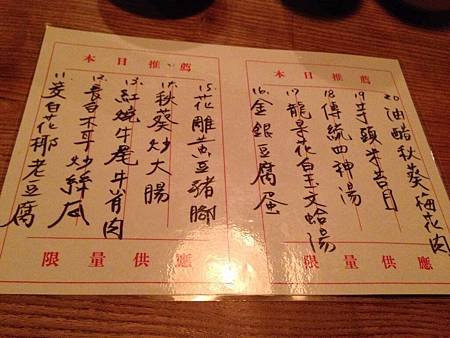 本日推薦
20.油醋秋葵梅花肉
19.芋頭米苔目
18.傳統四神湯
17.龍杲花白玉文蛤湯
16.金銀豆腐蛋
限量供應
本日推薦
15.花雕黃豆豬腳
14.秋葵炒大腸
13.紅燒牛尾牛肖肉
12.白木耳炒絲瓜
11.白花椰老豆腐
限量供應